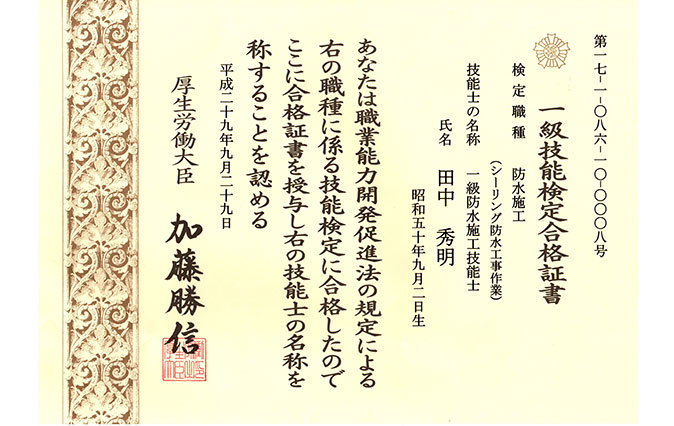 第一七-一-〇八六-一〇-〇〇〇八号
一級技能検定合格証書
検定職種　防水施工
（シーリング防水工事作業）
技能士の名称　一級防水施工技能士
氏名　田中　秀明
昭和五十年九月二日生
あなたは職業能力開発促進法の規定による
右の職種に係る技能検定に合格したので
ここに合格証書を授与し右の技能士の名称を
称することを認める
平成二十九年九月二十九日
厚生労働大臣　加藤勝信